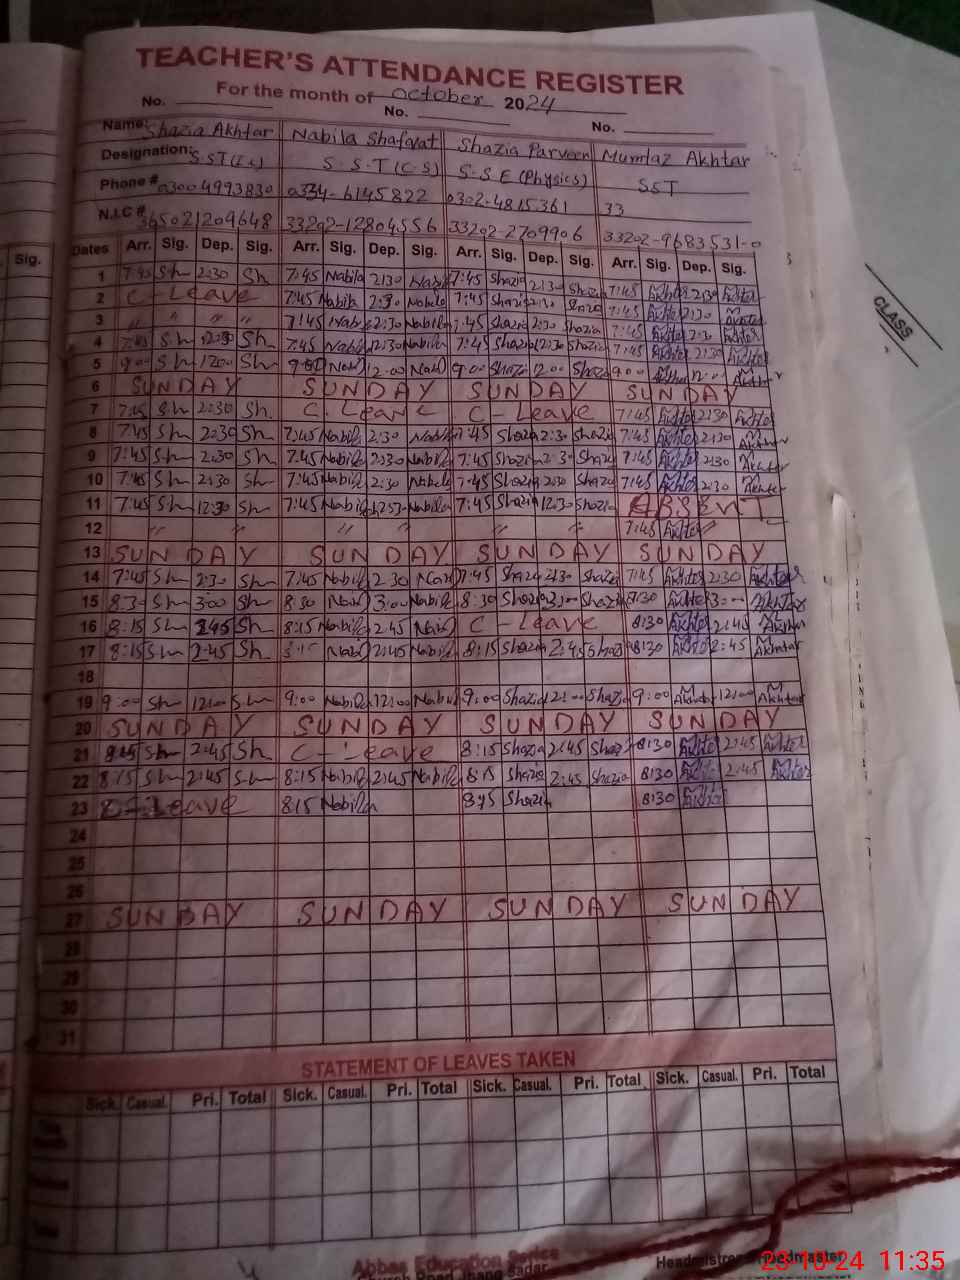 TEACHER'S ATTENDANCE REGISTER
For the month of October 2024
No. No. No.
Name: Shazia Akhtar Nabila Shafqat Shazia Parveen Mumtaz Akhtar
Designation: S.S.T (C.S) S.S.E (Physics) SST
Phone # 03004993830 0334-6145822 0302-4815361 33
N.I.C # 33202-12804556 33202-2709906 33202-9683531-0
Sig. Dates Arr. Sig. Dep. Sig. Arr. Sig. Dep. Sig. Arr. Sig. Dep. Sig. Arr. Sig. Dep. Sig.
1 7:45 Sh 2:30 Sh 7:45 Nabila 2:30 7:45 Shazia 2:30 Shazia 7:45 Akhter 2:30 Akhter
2 C-Leave 7:45 Nabila 2:30 Nabila 7:45 Shazia 2:30 Shazia 7:45 Akhter 2:30 Akhter
3 " " " " 7:45 2:30 Nabila 7:45 Shazia 2:30 Shazia 7:45 Akhter 2:30 Akhter
4 7:45 Sh 12:30 Sh 7:45 Nabila 12:30 Nabila 7:45 Shazia 12:30 Shazia 7:45 Akhter Akhter
5 9:00 Sh 12:00 Sh 9:00 12:00 9:00 Shazia 12:00 Shazia 9:00 12:00 Akhter
6 SUNDAY SUNDAY SUNDAY SUNDAY
7 7:45 Sh 2:30 Sh. C. Leave C-Leave 7:45 Akhter 2:30 Akhter
8 7:45 Sh 2:30 Sh 7:45 Nabila 2:30 Nabila 7:45 Shazia 2:30 Shazia 7:45 Akhter 2:30 Akhter
9 7:45 Sh 2:30 Sh 7:45 Nabila 2:30 Nabila 7:45 Shazia 2:30 Shazia 7:45 Akhter 2:30 Akhter
10 7:45 Sh 2:30 Sh 7:45 Nabila 2:30 Nabila 7:45 Shazia 2:30 Shazia 7:45 Akhter 2:30 Akhter
11 7:45 Sh 12:30 Sh 7:45 Nabila Nabila 7:45 Shazia 12:30 Shazia ABSENT
12 " " " " " " 7:45 Akhter "
13 SUNDAY SUNDAY SUNDAY SUNDAY
14 7:45 Sh 2:30 Sh 7:45 Nabila 2:30 7:45 Shazia 2:30 Shazia 7:45 Akhter 2:30 Akhter
15 8:30 Sh 3:00 Sh 8:30 3:00 Nabila 8:30 Shazia 3:00 Shazia Akhter 3:00 Akhter
16 8:15 Sh 2:45 Sh 8:15 Nabila 2:45 C-Leave 8:30 Akhter 2:45 Akhter
17 8:15 Sh 2:45 Sh 2:45 Nabila 8:15 Shazia 2:45 Shazia 8:30 Akhter 2:45 Akhtar
18
19 9:00 Sh 12:00 Sh 9:00 Nabila 12:00 Nabila 9:00 Shazia 12:00 Shazia 9:00 Akhtar 12:00 Akhtar
20 SUNDAY SUNDAY SUNDAY SUNDAY
21 8:15 Sh 2:45 Sh C-Leave 8:15 Shazia 2:45 Shazia 8:30 Akhter 2:45 Akhter
22 8:15 Sh 2:45 Sh 8:15 Nabila 2:45 Nabila 8:15 Shazia 2:45 Shazia 8:30 Akhter 2:45 Akhter
23 C-Leave 8:15 Nabila 8:15 Shazia 8:30 Akhter
24
25
26
27 SUNDAY SUNDAY SUNDAY SUNDAY
28
29
30
31
STATEMENT OF LEAVES TAKEN
Sick. Casual. Pri. Total Sick. Casual. Pri. Total Sick. Casual. Pri. Total Sick. Casual. Pri. Total
Abbas Education Series
Church Road Jhang Sadar
CLASS
23-10-24 11:35